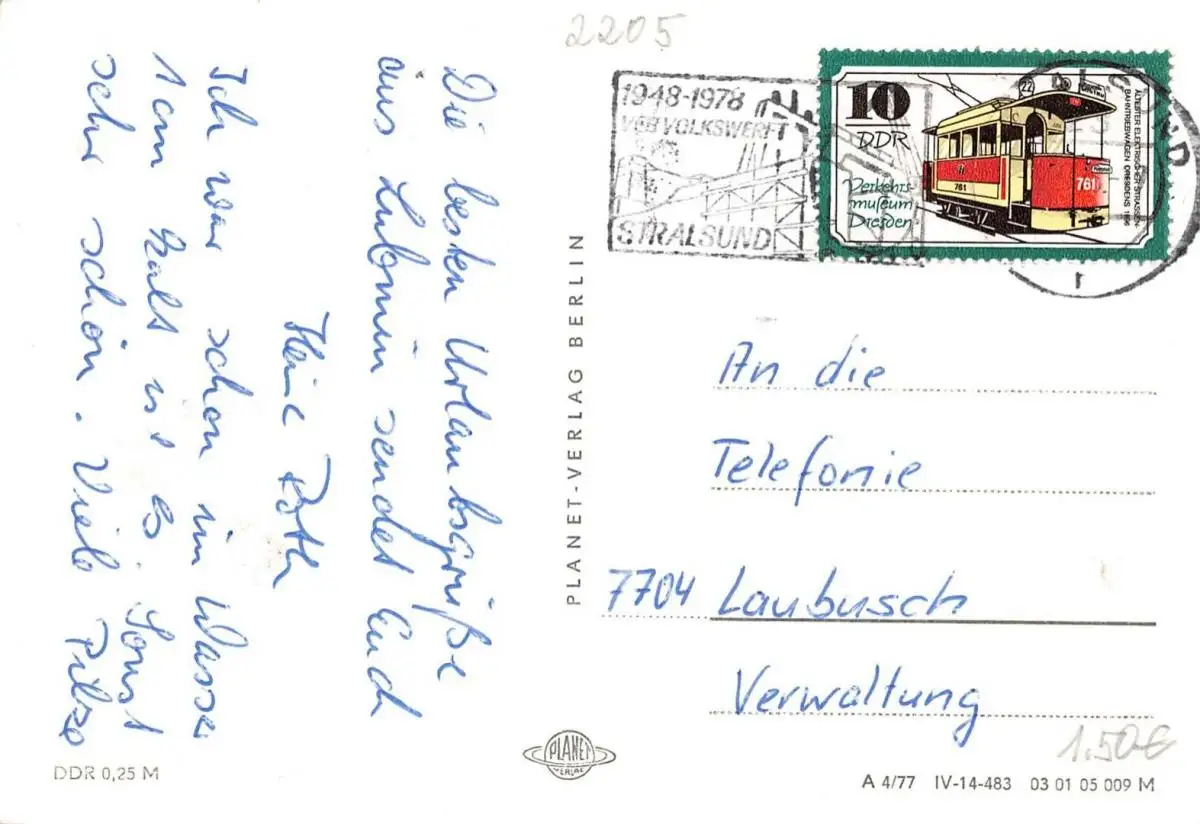 2205
1948-1978
VEB VOLKSWERFT
STRALSUND
10
DDR
Verkehrs-
museum
Dresden
ÄLTESTER ELEKTRISCHER STRASSEN-
BAHNTRIEBWAGEN DRESDENS 1896
22
761
761
Die besten Urlaubsgrüße
aus Lubmin sendet Euch
Roth
Ich war schon im Wasser
kalt ist es. Sonst
sehr schön. Viele Pilze
PLANET-VERLAG BERLIN
An die
Telefonie
7704 Laubusch
Verwaltung
1.50€
DDR 0,25 M
PLANET
VERLAG
A 4/77 IV-14-483 03 01 05 009 M